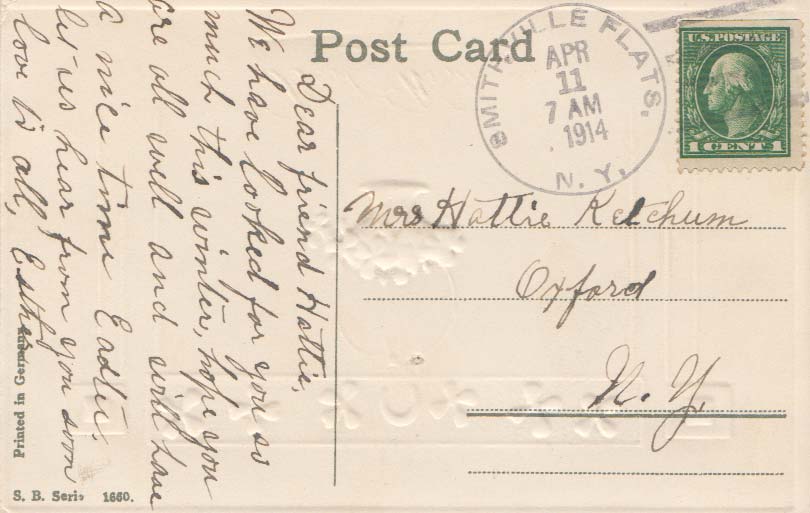 Post Card
SMITHVILLE FLATS,
APR
11
7 AM
1914
N. Y.
U.S. POSTAGE
1 CENT 1
Mrs Hattie Ketchum
Oxford
N. Y.
Dear friend Hattie,
We have looked for you so
much this winter, hope you
are all well and will have
a nice time Easter.
let us hear from you soon
love to all, Esther
Printed in Germany
S. B. Series 1660.